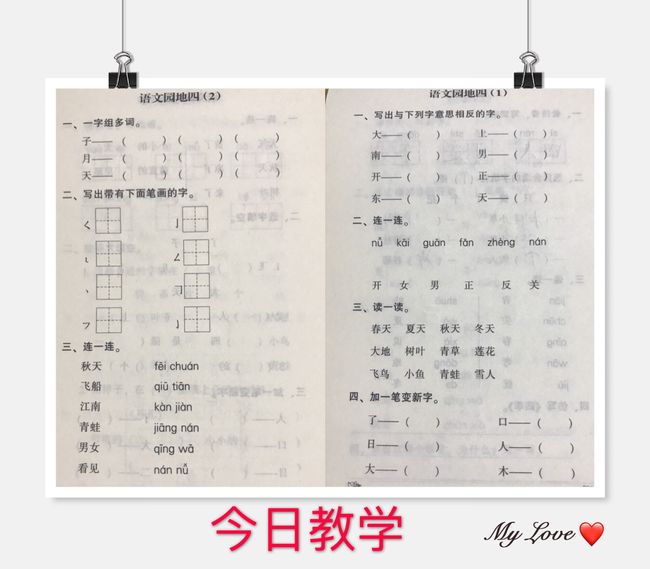 语文园地四（2）
一、一字组多词。
子——（ ）（ ）（ ）
月——（ ）（ ）（ ）
天——（ ）（ ）（ ）
二、写出带有下面笔画的字。
三、连一连。
秋天 fēi chuán
飞船 qiū tiān
江南 kàn jiàn
青蛙 jiāng nán
男女 qīng wā
看见 nán nǚ
语文园地四（1）
一、写出与下列字意思相反的字。
大——（ ） 上——（ ）
南——（ ） 男——（ ）
开——（ ） 正——（ ）
东——（ ） 天——（ ）
二、连一连。
nǚ kāi guān fǎn zhèng nán
开 女 男 正 反 关
三、读一读。
春天 夏天 秋天 冬天
大地 树叶 青草 莲花
飞鸟 小鱼 青蛙 雪人
四、加一笔变新字。
了——（ ） 口——（ ）
日——（ ） 人——（ ）
大——（ ） 木——（ ）
今日教学
My Love